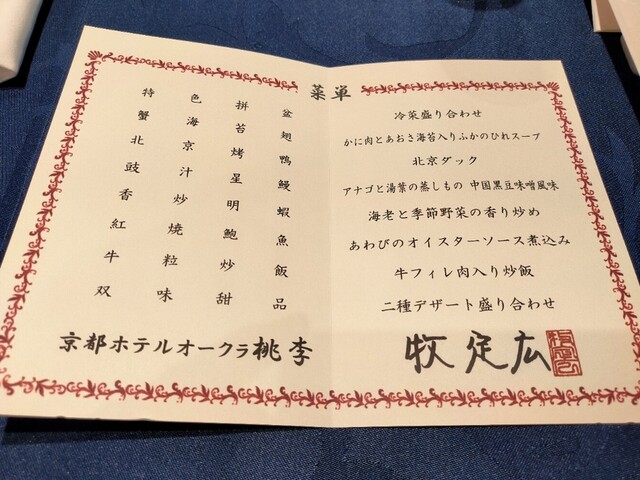 菜単
特色拼盆
蟹海苔翅
北京烤鴨
豉汁星鰻
香炒明蝦
紅焼鮑魚
牛粒炒飯
双味甜品
京都ホテルオークラ桃李
冷菜盛り合わせ
かに肉とあおさ海苔入りふかのひれスープ
北京ダック
アナゴと湯葉の蒸しもの 中国黒豆味噌風味
海老と季節野菜の香り炒め
あわびのオイスターソース煮込み
牛フィレ肉入り炒飯
二種デザート盛り合わせ
牧 定広